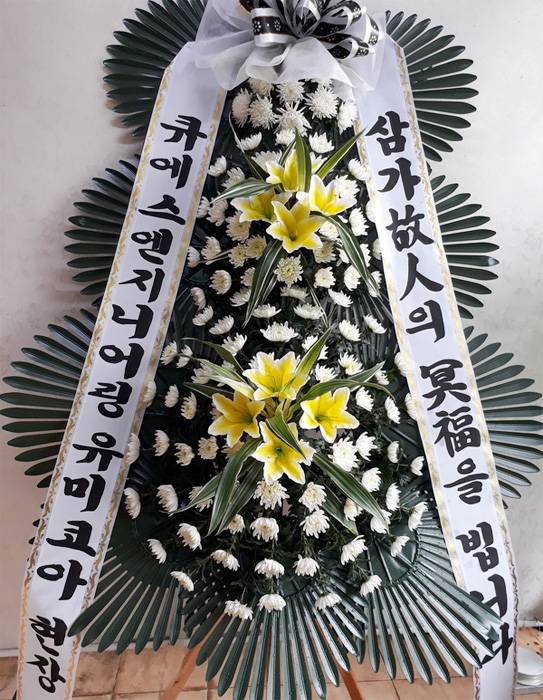 삼가故人의 冥福을 빕니다
큐에스엔지니어링 유미코아 현장